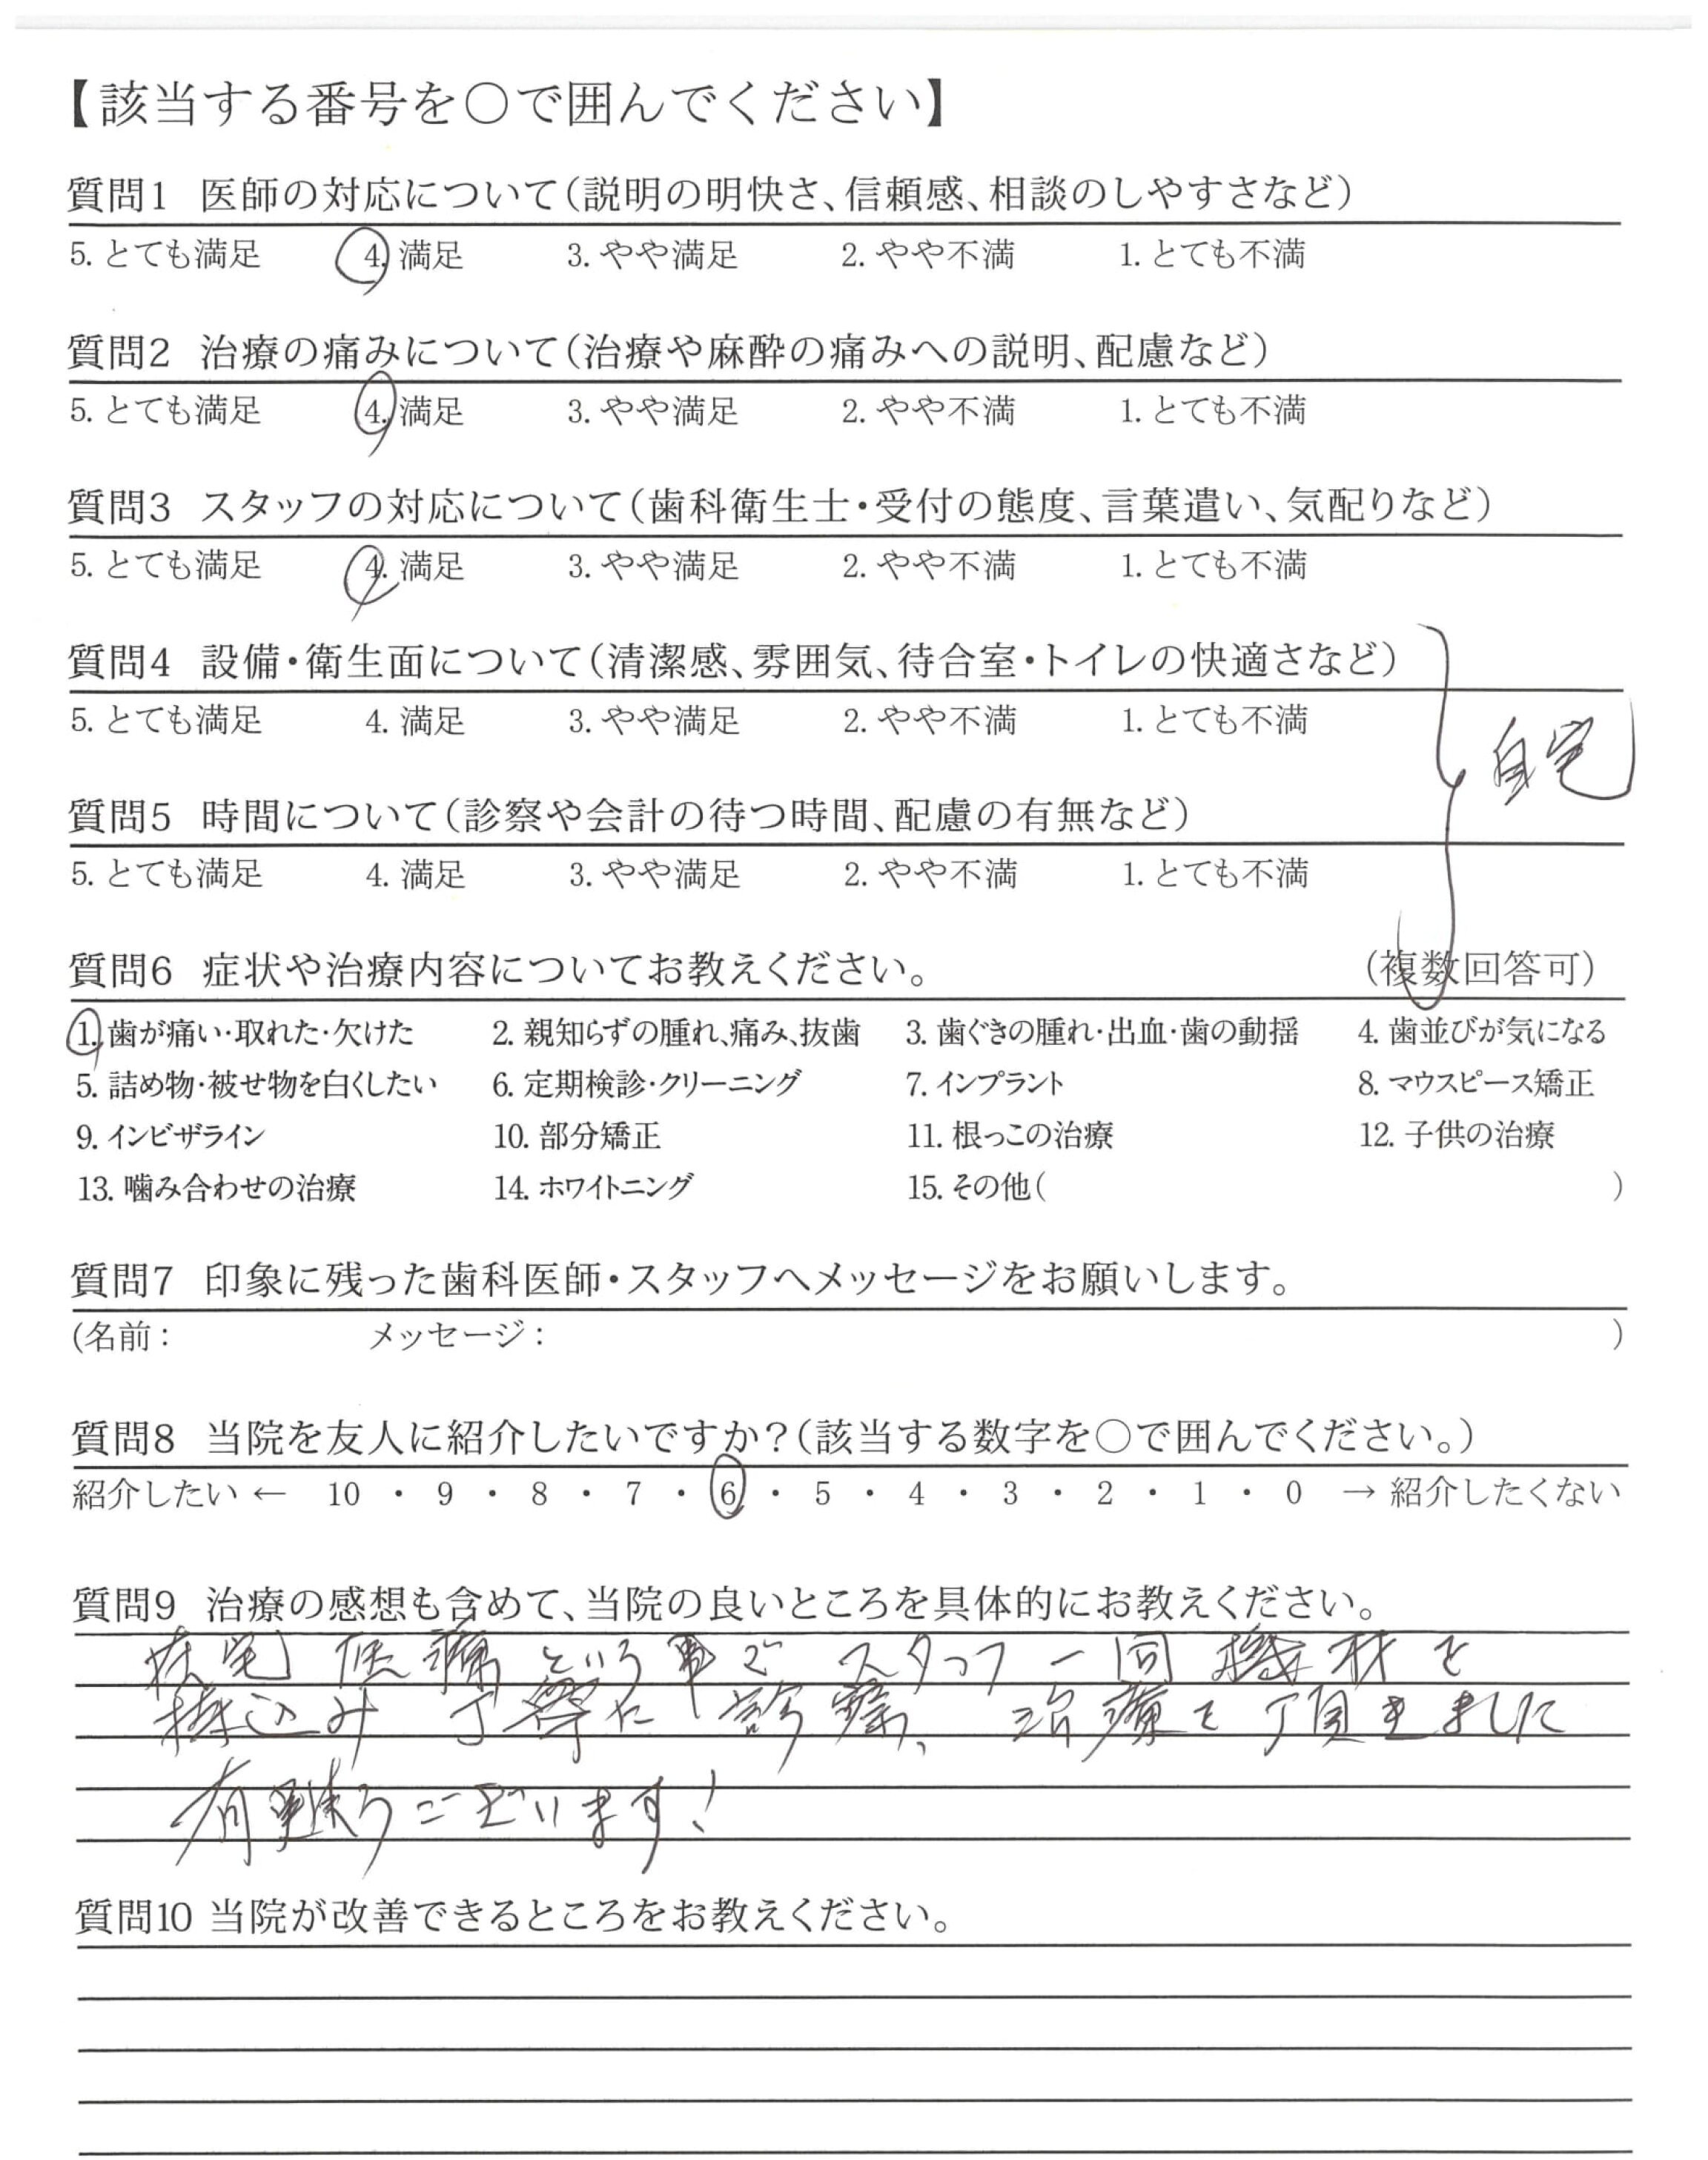 【該当する番号を〇で囲んでください】
質問1 医師の対応について(説明の明快さ、信頼感、相談のしやすさなど)
5. とても満足 4. 満足 3. やや満足 2. やや不満 1. とても不満
質問2 治療の痛みについて(治療や麻酔の痛みへの説明、配慮など)
5. とても満足 4. 満足 3. やや満足 2. やや不満 1. とても不満
質問3 スタッフの対応について(歯科衛生士・受付の態度、言葉遣い、気配りなど)
5. とても満足 4. 満足 3. やや満足 2. やや不満 1. とても不満
質問4 設備・衛生面について(清潔感、雰囲気、待合室・トイレの快適さなど)
5. とても満足 4. 満足 3. やや満足 2. やや不満 1. とても不満
自宅
質問5 時間について(診察や会計の待つ時間、配慮の有無など)
5. とても満足 4. 満足 3. やや満足 2. やや不満 1. とても不満
質問6 症状や治療内容についてお教えください。 (複数回答可)
1. 歯が痛い・取れた・欠けた 2. 親知らずの腫れ、痛み、抜歯 3. 歯ぐきの腫れ・出血・歯の動揺 4. 歯並びが気になる
5. 詰め物・被せ物を白くしたい 6. 定期検診・クリーニング 7. インプラント 8. マウスピース矯正
9. インビザライン 10. 部分矯正 11. 根っこの治療 12. 子供の治療
13. 噛み合わせの治療 14. ホワイトニング 15. その他( )
質問7 印象に残った歯科医師・スタッフへメッセージをお願いします。
(名前: メッセージ: )
質問8 当院を友人に紹介したいですか?(該当する数字を〇で囲んでください。)
紹介したい ← 10 ・ 9 ・ 8 ・ 7 ・ 6 ・ 5 ・ 4 ・ 3 ・ 2 ・ 1 ・ 0 → 紹介したくない
質問9 治療の感想も含めて、当院の良いところを具体的にお教えください。
在宅 という事で スタッフ一同 機材を
持込み 丁寧に 診察、治療を頂きました
有難うございます!
質問10 当院が改善できるところをお教えください。